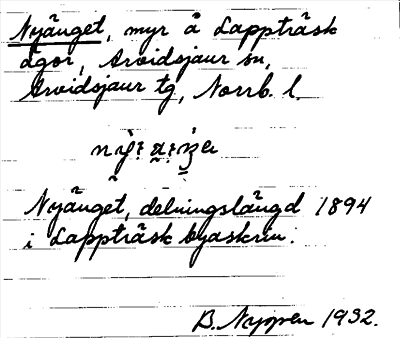 Nyänget, myr å Lappträsk
ägor, Arvidsjaur sn,
Arvidsjaur tg, Norrb. l.
Nyänget, delningslängd 1894
i Lappträsk byaskrin.
B. Nyppen 1932.